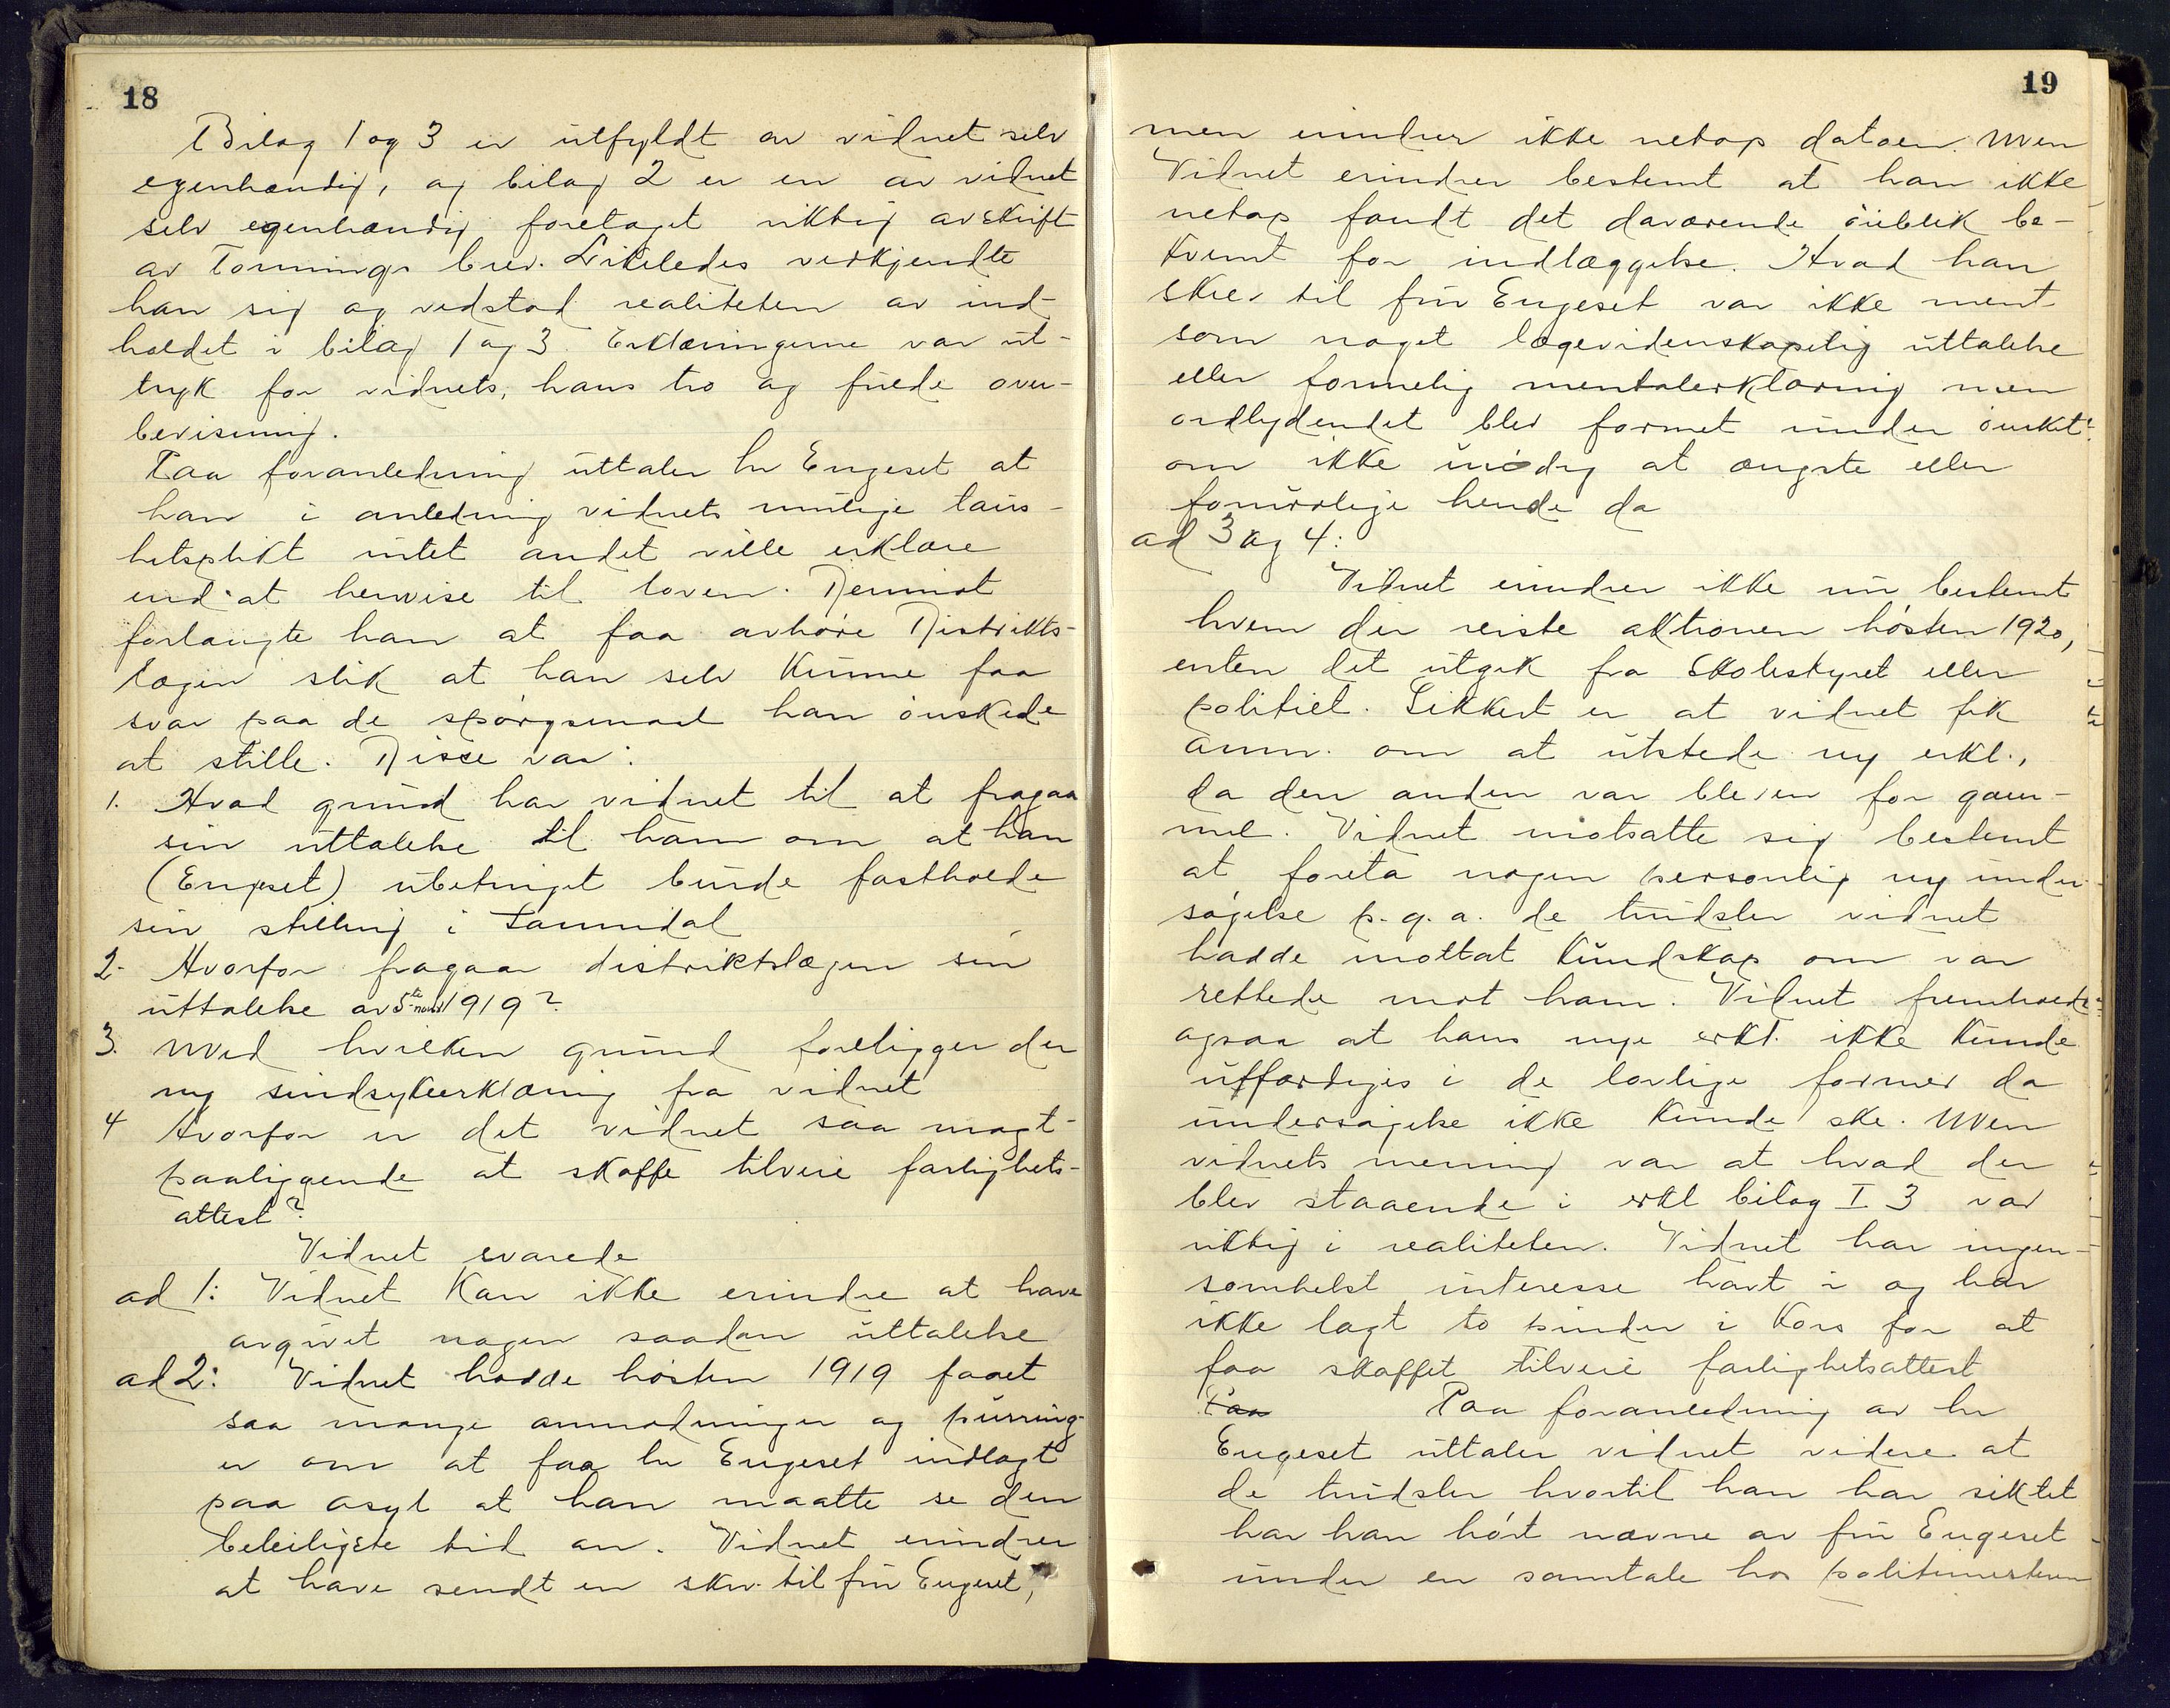 18
Bilag 1 og 3 er utfyldt av vidnet selv
egenhændig, og bilag 2 er en av vidnet
selv egenhændig foretaget riktig avskrift
av Tonnings brev. Likeledes vedkjendte
han sig og vedstod realiteten av ind-
holdet i bilag 1 og 3. Erklæringerne var ut-
tryk for vidnets, hans tro og fulde over-
bevisning.
Paa foranledning uttaler hr Engeset at
han i anledning vidnets mulige taus-
hetsplikt intet andet ville erklære
end at henvise til loven. Derimot
forlangte han at faa avhøre Distrikts-
lægen slik at han selv kunne faa
svar paa de spørgsmaal han ønskede
at stille. Disse var:
1. Hvad grund har vidnet til at fragaa
sin uttalelse til ham om at han
(Engeset) ubetinget burde fastholde
sin stilling i Sannidal
2. Hvorfor fragaar distriktslægen sin
uttalelse av 5te novbr 1919?
3. Med hvilken grund foreligger der
ny sindsykeerklæring fra vidnet
4 Hvorfor er det vidnet saa magt-
paaliggende at skaffe tilveie farlighets-
attest?
Vidnet svarede
ad 1: Vidnet kan ikke erindre at have
avgivet nogen saadan uttalelse
ad 2: Vidnet hadde høsten 1919 faaet
saa mange anmodninger og purring-
er om at faa hr Engeset indlagt
paa asyl at han maatte se den
beleiligste tid an. Vidnet erindrer
at have sendt en skr. til fru Engeset,
19
men erindrer ikke netop datoen. Men
Vidnet erindrer bestemt at han ikke
netop fandt det daværende øieblik be-
kvemt for indlæggelse. Hvad han
skrev til fru Engeset var ikke ment
som noget lægevidenskapelig uttalelse
eller formelig mentalerklæring men
ordlydendet blev formet under ønsket
om ikke unødig at ængste eller
forurolige hende da
ad 3 og 4:
Vidnet erindrer ikke nu bestemt
hvem der reiste aktionen høsten 1920,
enten det utgik fra Skolestyret eller
politiet. Sikkert er at vidnet fik
anm. om at utstede ny erkl.,
da den anden var bleven for gam-
mel. Vidnet motsatte sig bestemt
at foreta nogen personlig ny under-
søgelse p. g. a. de trudsler vidnet
hadde mottat kundskap om var
rettede mot ham. Vidnet fremholdt
ogsaa at hans nye erkl. ikke kunde
utfærdiges i de lovlige former da
undersøgelse ikke kunde ske. Men
vidnets mening var at hvad der
blev staaende i erkl bilag I 3 var
riktig i realiteten. Vidnet har ingen-
somhelst interesse havt i og har
ikke lagt to pinder i kors for at
faa skaffet tilveie farlighetsattest
Paa Paa foranledning av hr
Engeset uttaler vidnet videre at
de trudsler hvortil han har siktet
har han hørt nævne av fru Engeset
under en samtale hos politimesteren